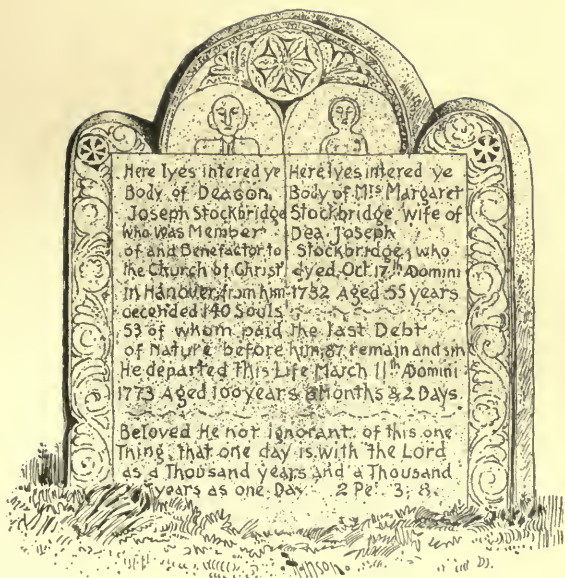 Here lyes intered ye
Body of Deacon,
Joseph Stockbridge
who was Member
of and Benefactor to
the Church of Christ
in Hanover, from him
decended 140 Souls
Here lyes intered ye
Body of Mrs Margaret
Stockbridge wife of
Dea. Joseph
Stockbridge, who
dyed Oct 17th ADomini
1732 Aged 55 years
53 of whom paid the last Debt
of Nature before him, 87 remain and
He departed This Life March 11th ADomini
1773 Aged 100 years 8 Months & 2 Days.
Beloved He not ignorant of this one
Thing, that one day is with the Lord
as a Thousand years and a Thousand
years as one Day. 2 Pet. 3; 8.